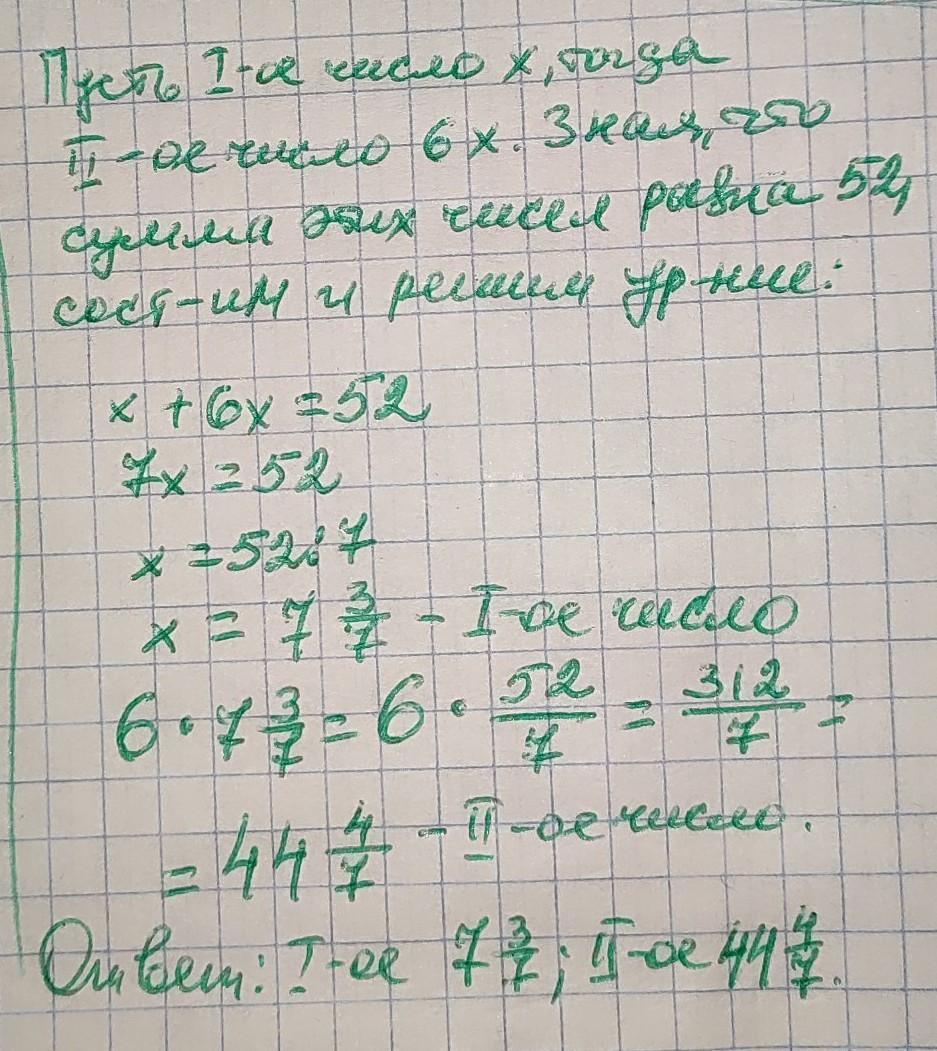 Пусть I-ое число x, тогда
II-ое число 6x. Зная, что
сумма этих чисел равна 52,
сост-им и решим ур-ние:
x + 6x = 52
7x = 52
x = 52:7
x = 7 3/7 - I-ое число
6 · 7 3/7 = 6 · 52/7 = 312/7 =
= 44 4/7 - II-ое число.
Ответ: I-ое 7 3/7; II-ое 44 4/7.